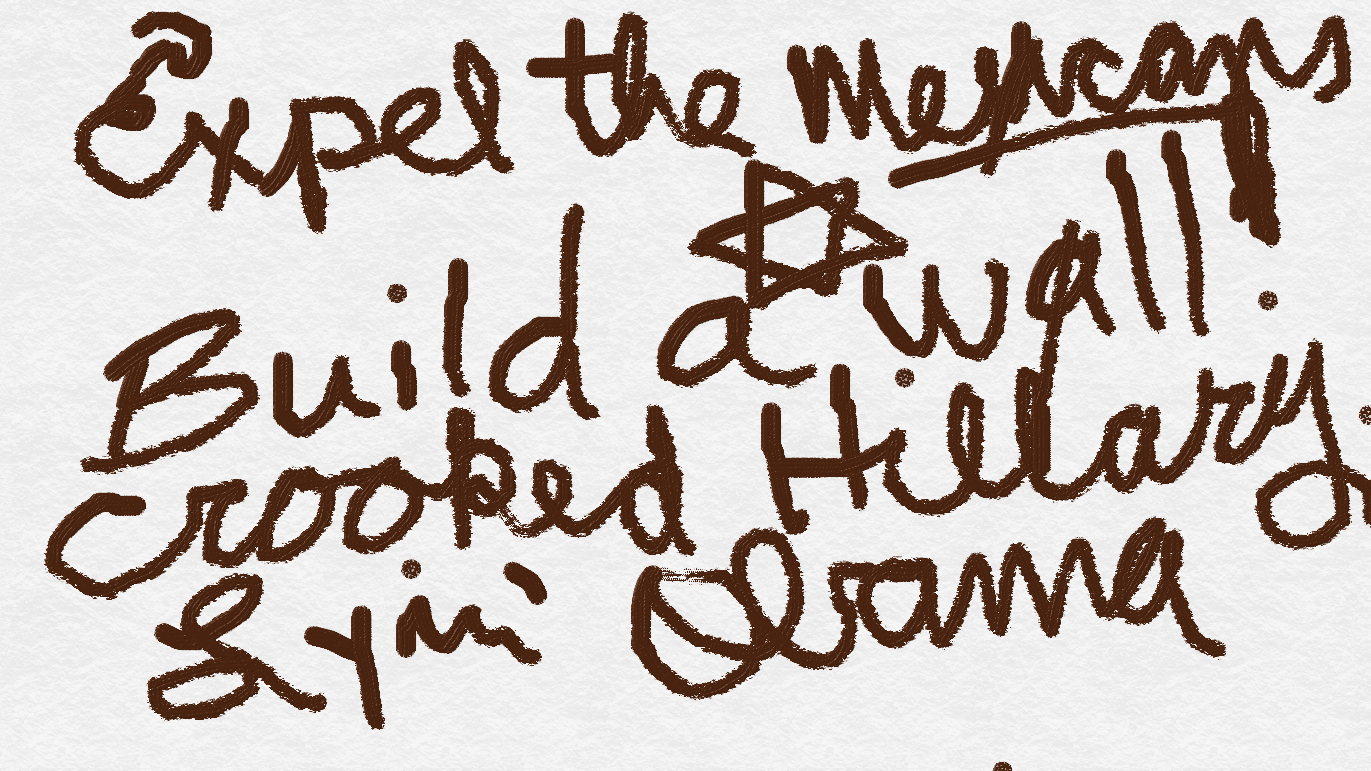 Expel the Mexicans
Build a wall
Crooked Hillary
Lyin' Obama